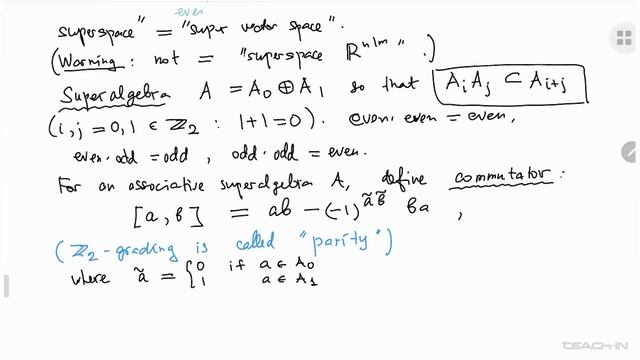 even
superspace" = "super vector space".
(Warning: not = "superspace ℝⁿ|ᵐ".)
Superalgebra A = A₀ ⊕ A₁ so that AᵢAⱼ ⊂ Aᵢ₊ⱼ
(i, j = 0, 1 ∈ ℤ₂ : 1+1=0). even·even = even,
even·odd = odd, odd·odd = even.
For an associative superalgebra A, define commutator:
[a, b] = ab − (−1)^{ãb̃} ba,
(ℤ₂-grading is called "parity")
where ã = { 0 if a ∈ A₀
1 a ∈ A₁
TEACH-IN